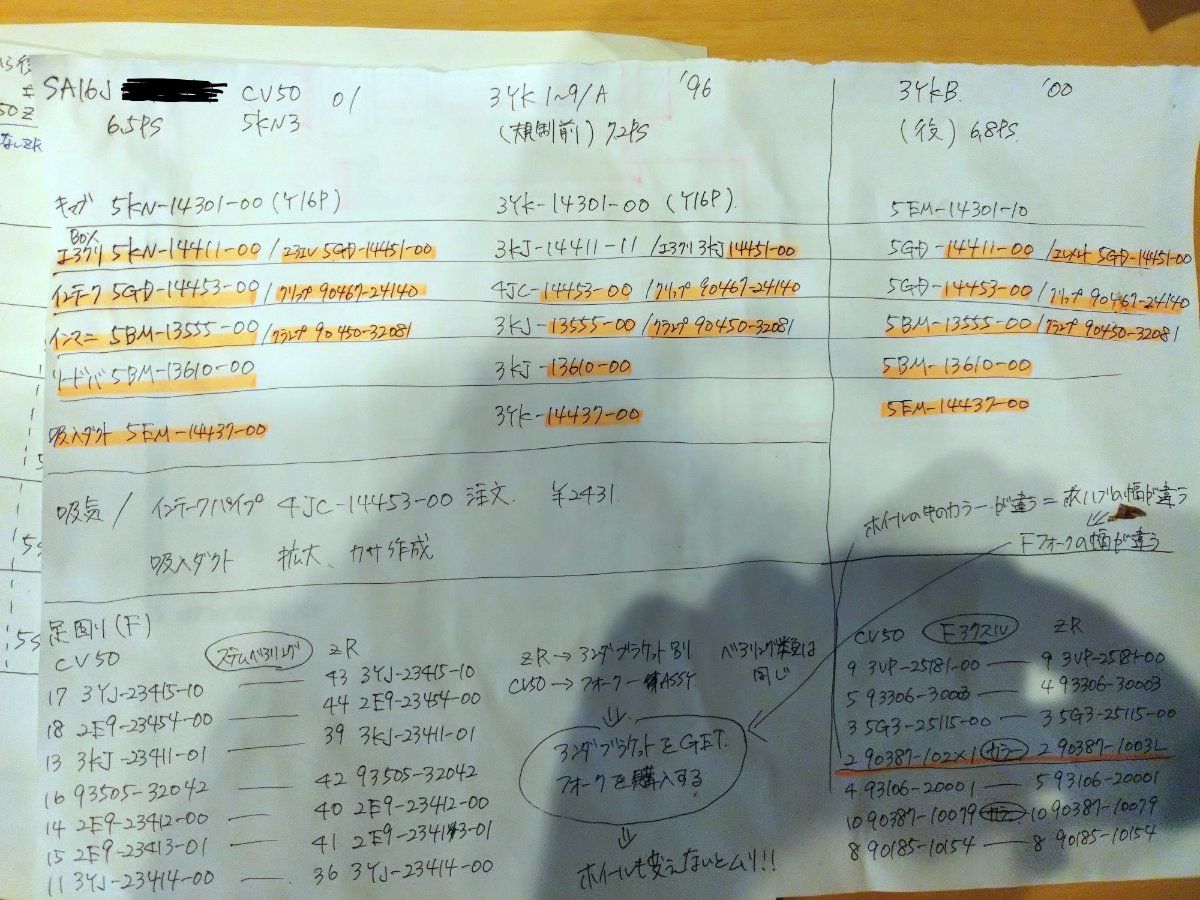 SA16J CV50 01 3YK 1~9/A '96 3YKB. '00
6.5PS 5KN3 (規制前) 7.2PS (後) 6.8PS
キャブ 5KN-14301-00 (Y16P) 3YK-14301-00 (Y16P). 5EM-14301-10
BOX
エアクリ 5KN-14411-00 / エアエレ 5GD-14451-00 3KJ-14411-11 / エアクリ 3KJ 14451-00 5GD-14411-00 / エレメント 5GD-14451-00
インテーク 5GD-14453-00 / クリップ 90467-24140 4JC-14453-00 / クリップ 90467-24140 5GD-14453-00 / クリップ 90467-24140
インマニ 5BM-13555-00 / クランプ 90450-32081 3KJ-13555-00 / クランプ 90450-32081 5BM-13555-00 / クランプ 90450-32081
リードバ 5BM-13610-00 3KJ-13610-00 5BM-13610-00
吸入ダクト 5EM-14437-00 3YK-14437-00 5EM-14437-00
吸気 / インテークパイプ 4JC-14453-00 注文. ¥2431
吸入ダクト 拡大、カサ作成
ホイールの中のカラーが違う = 友 ハブの幅が違う
Fフォークの幅が違う
足回り (F)
CV50 ステムベアリング ZR
17 3YJ-23415-10 — 43 3YJ-23415-10
18 2E9-23454-00 — 44 2E9-23454-00
13 3KJ-23411-01 — 39 3KJ-23411-01
16 93505-32042 — 42 93505-32042
14 2E9-23412-00 — 40 2E9-23412-00
15 2E9-23413-01 — 41 2E9-23413-01
11 3YJ-23414-00 — 36 3YJ-23414-00
ZR → アンダブラケット別り ベアリング類は
CV50 → フォーク一体ASSY 同じ
⇓
アンダブラケットをGET.
フォークを購入する
⇓
ホイールも変えないとムリ!!
CV50 Fアクスル ZR
9 3VP-25181-00 — 9 3VP-25181-00
5 93306-30003 — 4 93306-30003
3 5G3-25115-00 — 3 5G3-25115-00
2 90387-102X1 カラー 2 90387-1003L
4 93106-20001 — 5 93106-20001
10 90387-10079 カラー 10 90387-10079
8 90185-10154 — 8 90185-10154